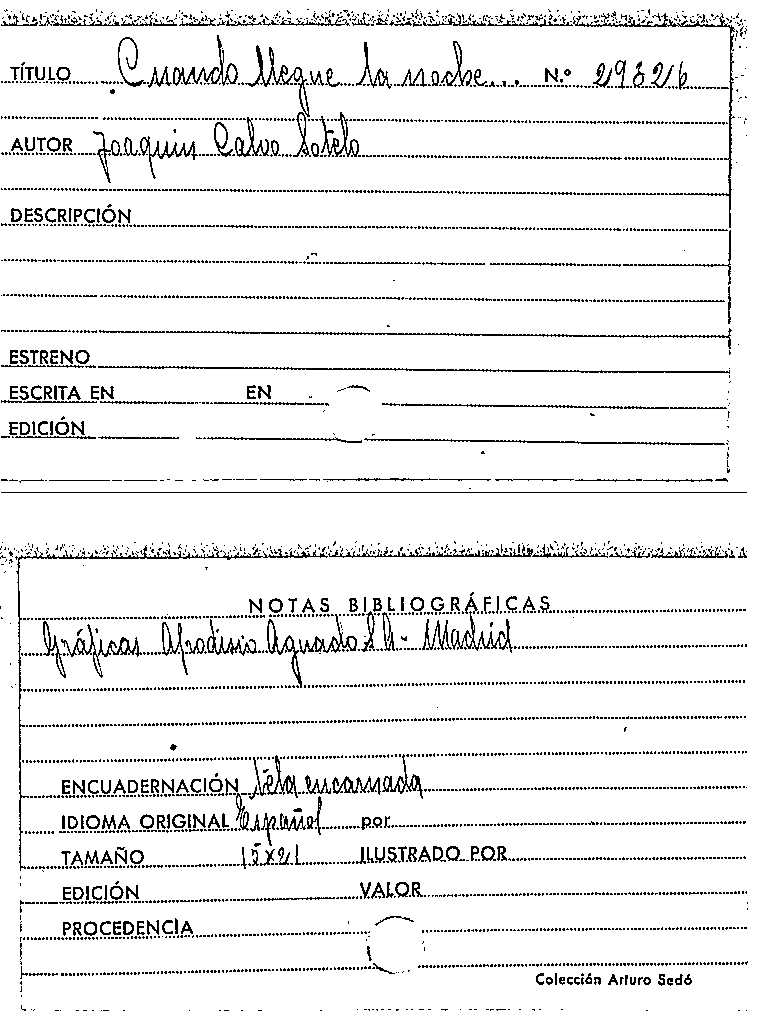 TÍTULO Cuando llegue la noche... N.º 29826
AUTOR Joaquin Calvo Sotelo
DESCRIPCIÓN
ESTRENO
ESCRITA EN EN
EDICIÓN
NOTAS BIBLIOGRÁFICAS
Gráficas Afrodisio Aguado S.A.- Madrid
ENCUADERNACIÓN tela encarnada
IDIOMA ORIGINAL Español por
TAMAÑO 15x21 ILUSTRADO POR
EDICIÓN VALOR
PROCEDENCIA
Colección Arturo Sedó